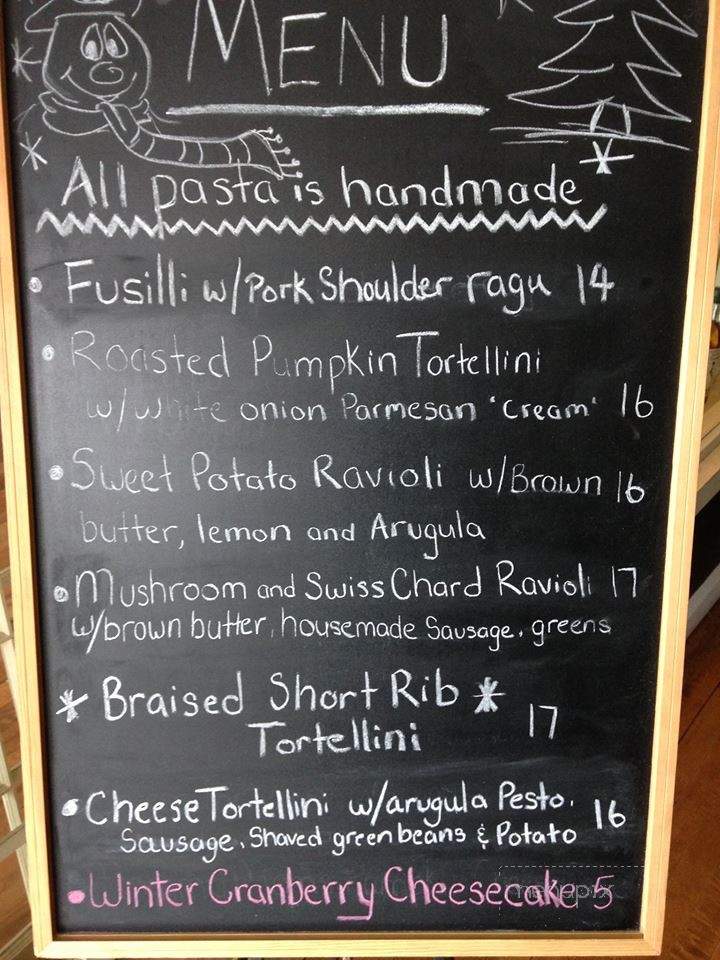 MENU
All pasta is handmade
• Fusilli w/Pork Shoulder ragu 14
• Roasted Pumpkin Tortellini
w/white onion Parmesan 'Cream' 16
• Sweet Potato Ravioli w/Brown 16
butter, lemon and Arugula
• Mushroom and Swiss Chard Ravioli 17
w/brown butter, housemade Sausage, greens
* Braised Short Rib *
Tortellini 17
• Cheese Tortellini w/arugula Pesto, 16
Sausage, Shaved green beans & Potato
• Winter Cranberry Cheesecake 5